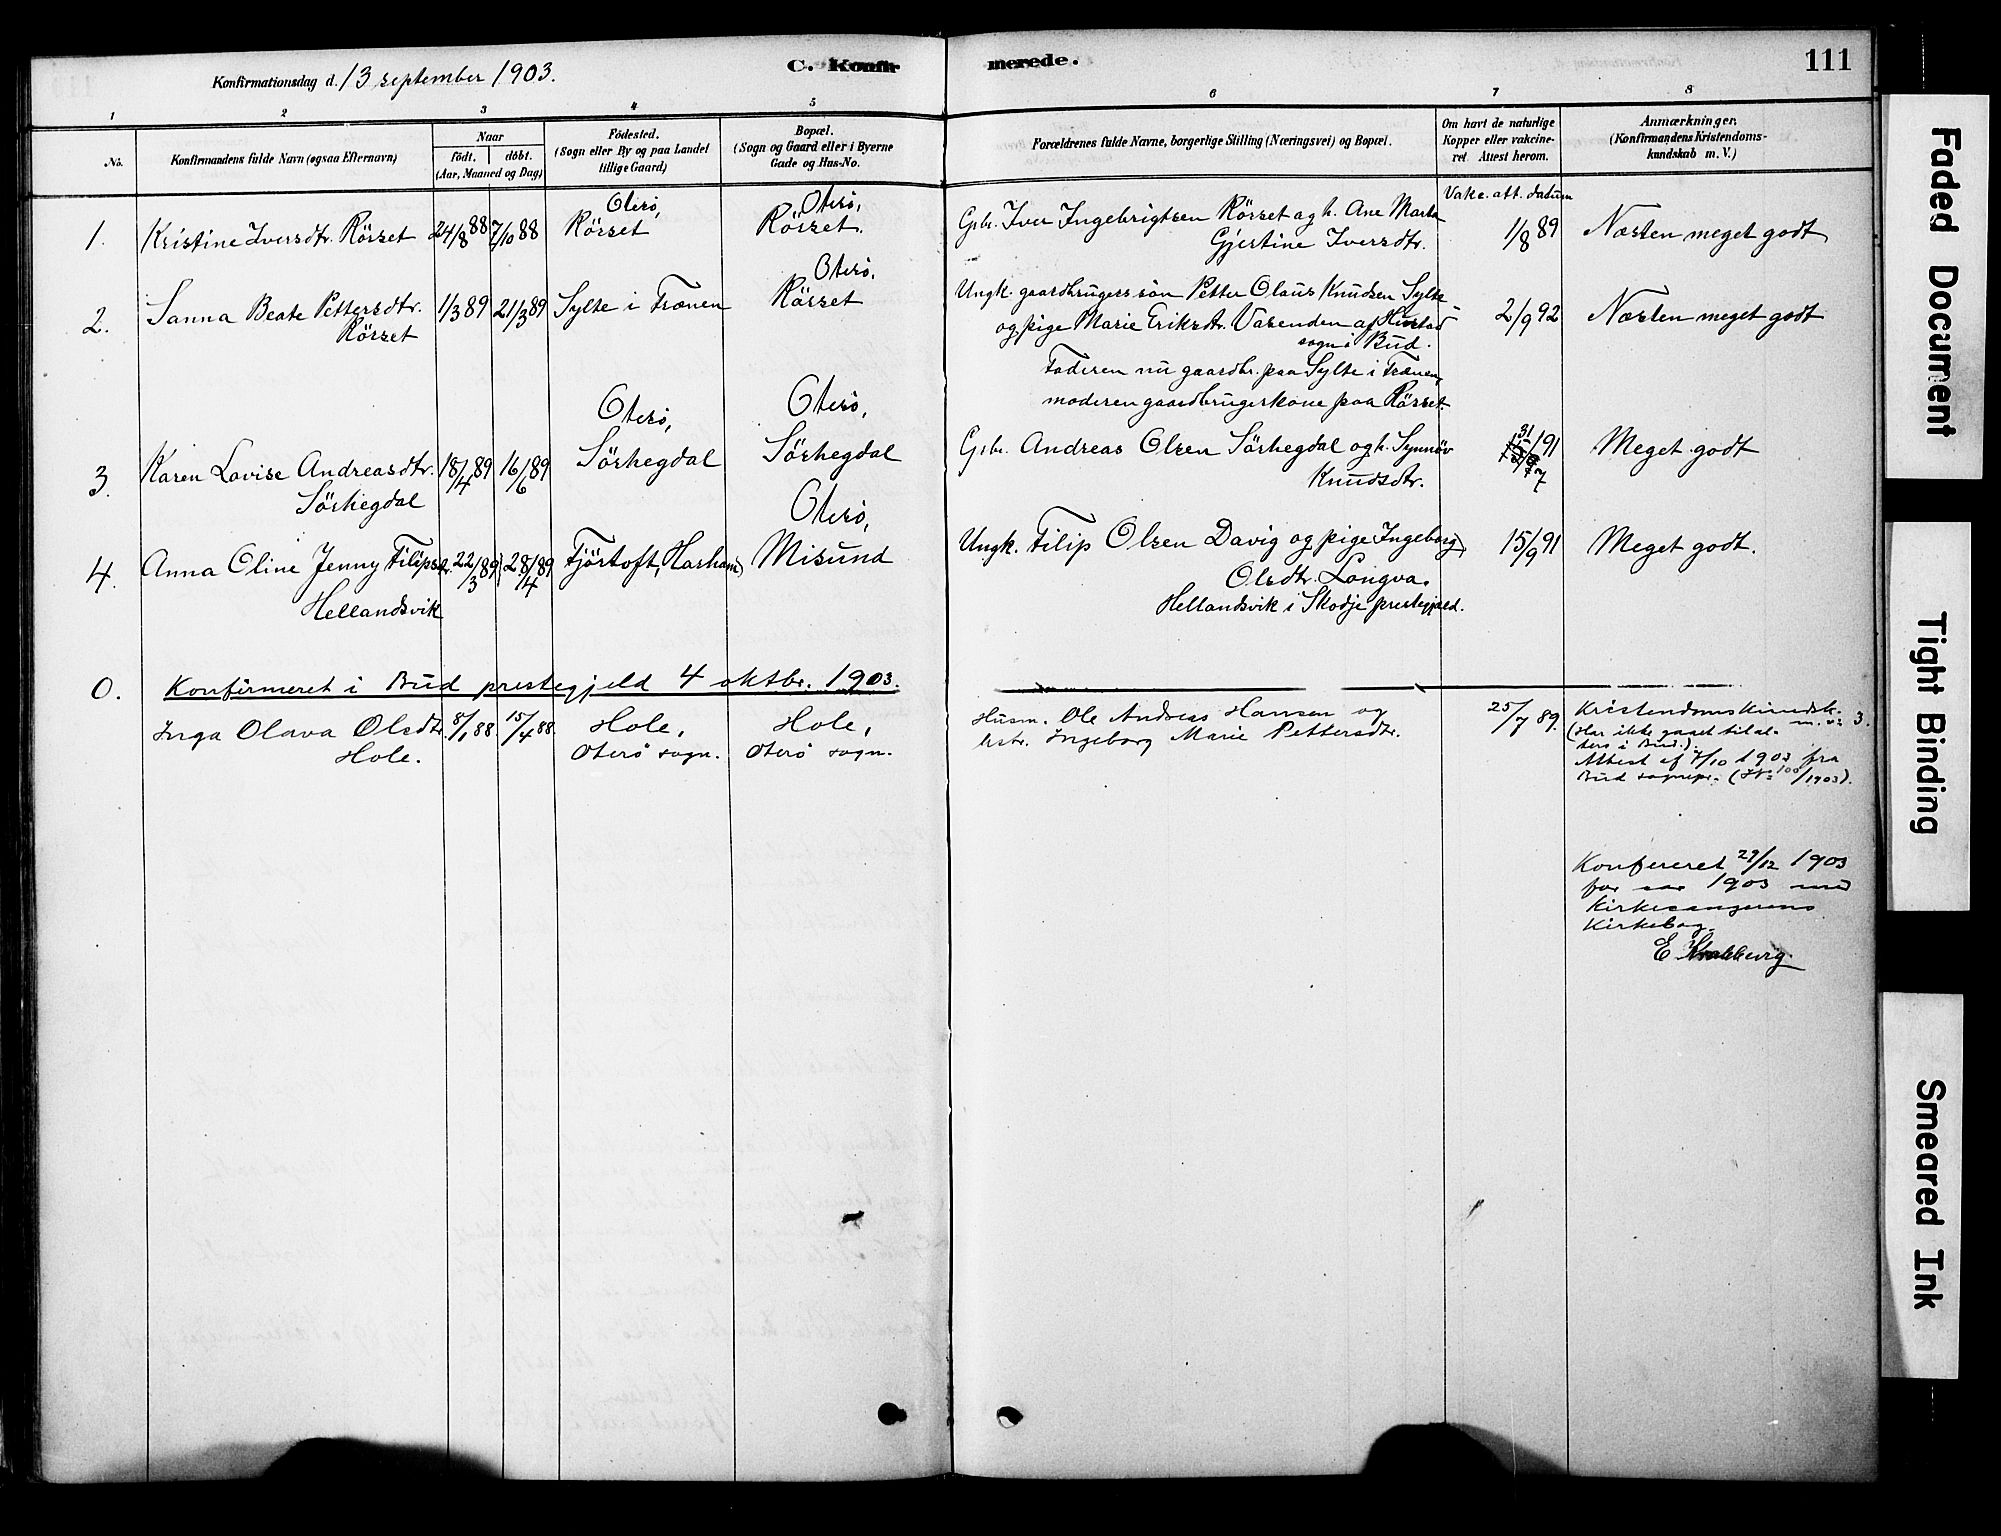 C. Konfirmerede.
111
Konfirmationsdag d. 13 september 1903.
1 2 3 4 5 6 7 8
No.
Konfirmandens fulde Navn (ogsaa Efternavn)
Naar
født. døbt.
(Aar, Maaned og Dag)
Fødested.
(Sogn eller By og paa Landet
tillige Gaard)
Bopæl.
(Sogn og Gaard eller i Byerne
Gade og Hus-No.
Forældrenes fulde Navne, borgerlige Stilling (Næringsvei) og Bopæl.
Om havt de naturlige
Kopper eller vakcine-
ret. Attest herom.
Anmærkninger.
(Konfirmandens Kristendoms-
kundskab m. V.)
Vakc. att. datum
1. Kristine Iversdtr. Rörset 24/8 88 7/10 88
Oterö,
Rörset
Oterö,
Rörset.
Gbr. Iver Ingebrigtsen Rörset og h. Ane Marta
Gjertine Iversdtr.
1/8 89 Næsten meget godt
2. Sanna Beate Pettersdtr.
Rörset
1/3 89 21/3 89 Sylte i Frænen
Oterö,
Rörset
Ungk. gaardbrugerssön Petter Olaus Knudsen Sylte
og pige Marie Eriksdtr. Vasenden af Hustad
sogn i Bud.
Faderen nu gaardbr. paa Sylte i Frænen,
moderen gaardbrugerkone paa Rörset.
2/9 92 Næsten meget godt
3. Karen Lovise Andreasdtr.
Sörhegdal
18/4 89 16/6 89
Oterö,
Sörhegdal
Oterö,
Sörhegdal
Gbr. Andreas Olsen Sörhegdal og h. Synnöv
Knudsdtr.
31/7 91 Meget godt
4. Anna Oline Jenny Filipsdtr.
Hellandsvik
22/3 89 28/4 89 Fjörtoft, Harham
Oterö,
Misund
Ungk. Filip Olsen Davig og pige Ingeborg
Olsdtr. Longva.
Hellandsvik i Skodje prestegjeld.
15/9 91 Meget godt.
0. Konfirmeret i Bud prestegjeld 4 oktbr. 1903.
Inga Olava Olsdtr.
Hole.
8/1 88 15/4 88
Hole,
Oterö sogn.
Hole,
Oterö sogn.
Husm. Ole Andreas Hansen og
hstr. Ingeborg Marie Pettersdtr.
25/7 89.
Kristendomskundsk.
m. v: 3.
(Har ikke gaaet til al-
ters i Bud.)
Attest af 7/10 1903 fra
Bud sognepr. (No 100/1903).
Konfereret 29/12 1903
for aar 1903 med
Kirkesangerens
Kirkebog.
E.
Faded Document
Tight Binding
Smeared Ink